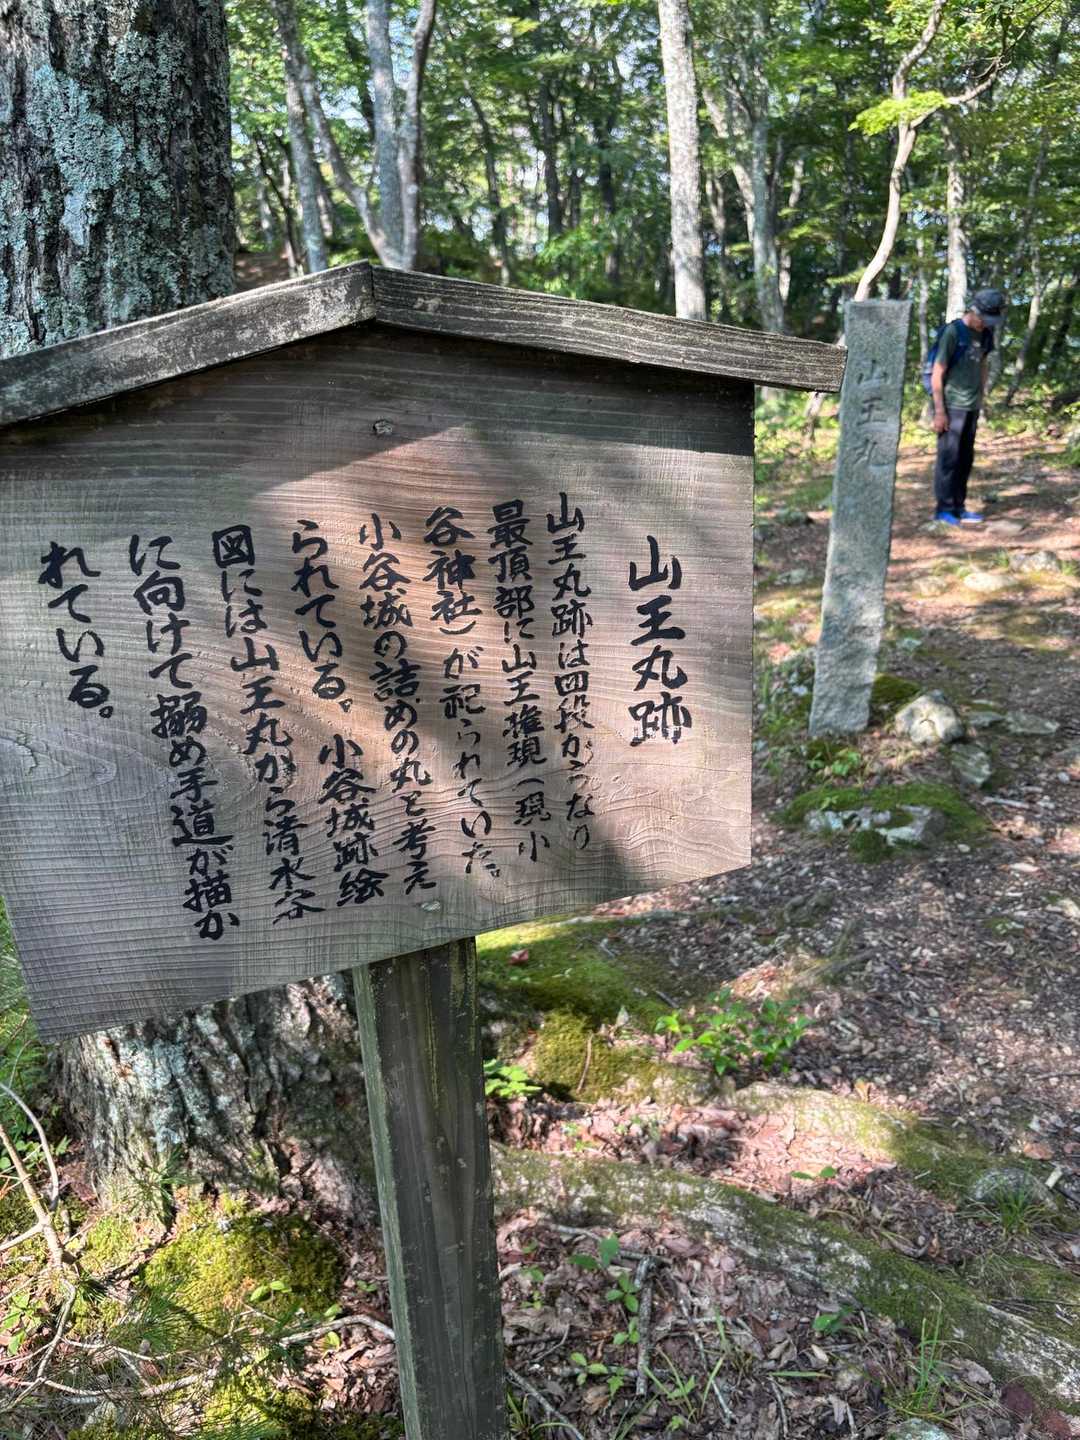 山王丸跡
山王丸跡は四段からなり
最頂部に山王権現（現小
谷神社）が祀られていた。
小谷城の詰めの丸と考え
られている。小谷城跡絵
図には山王丸から清水谷
に向けて搦め手道が描か
れている。
山王丸